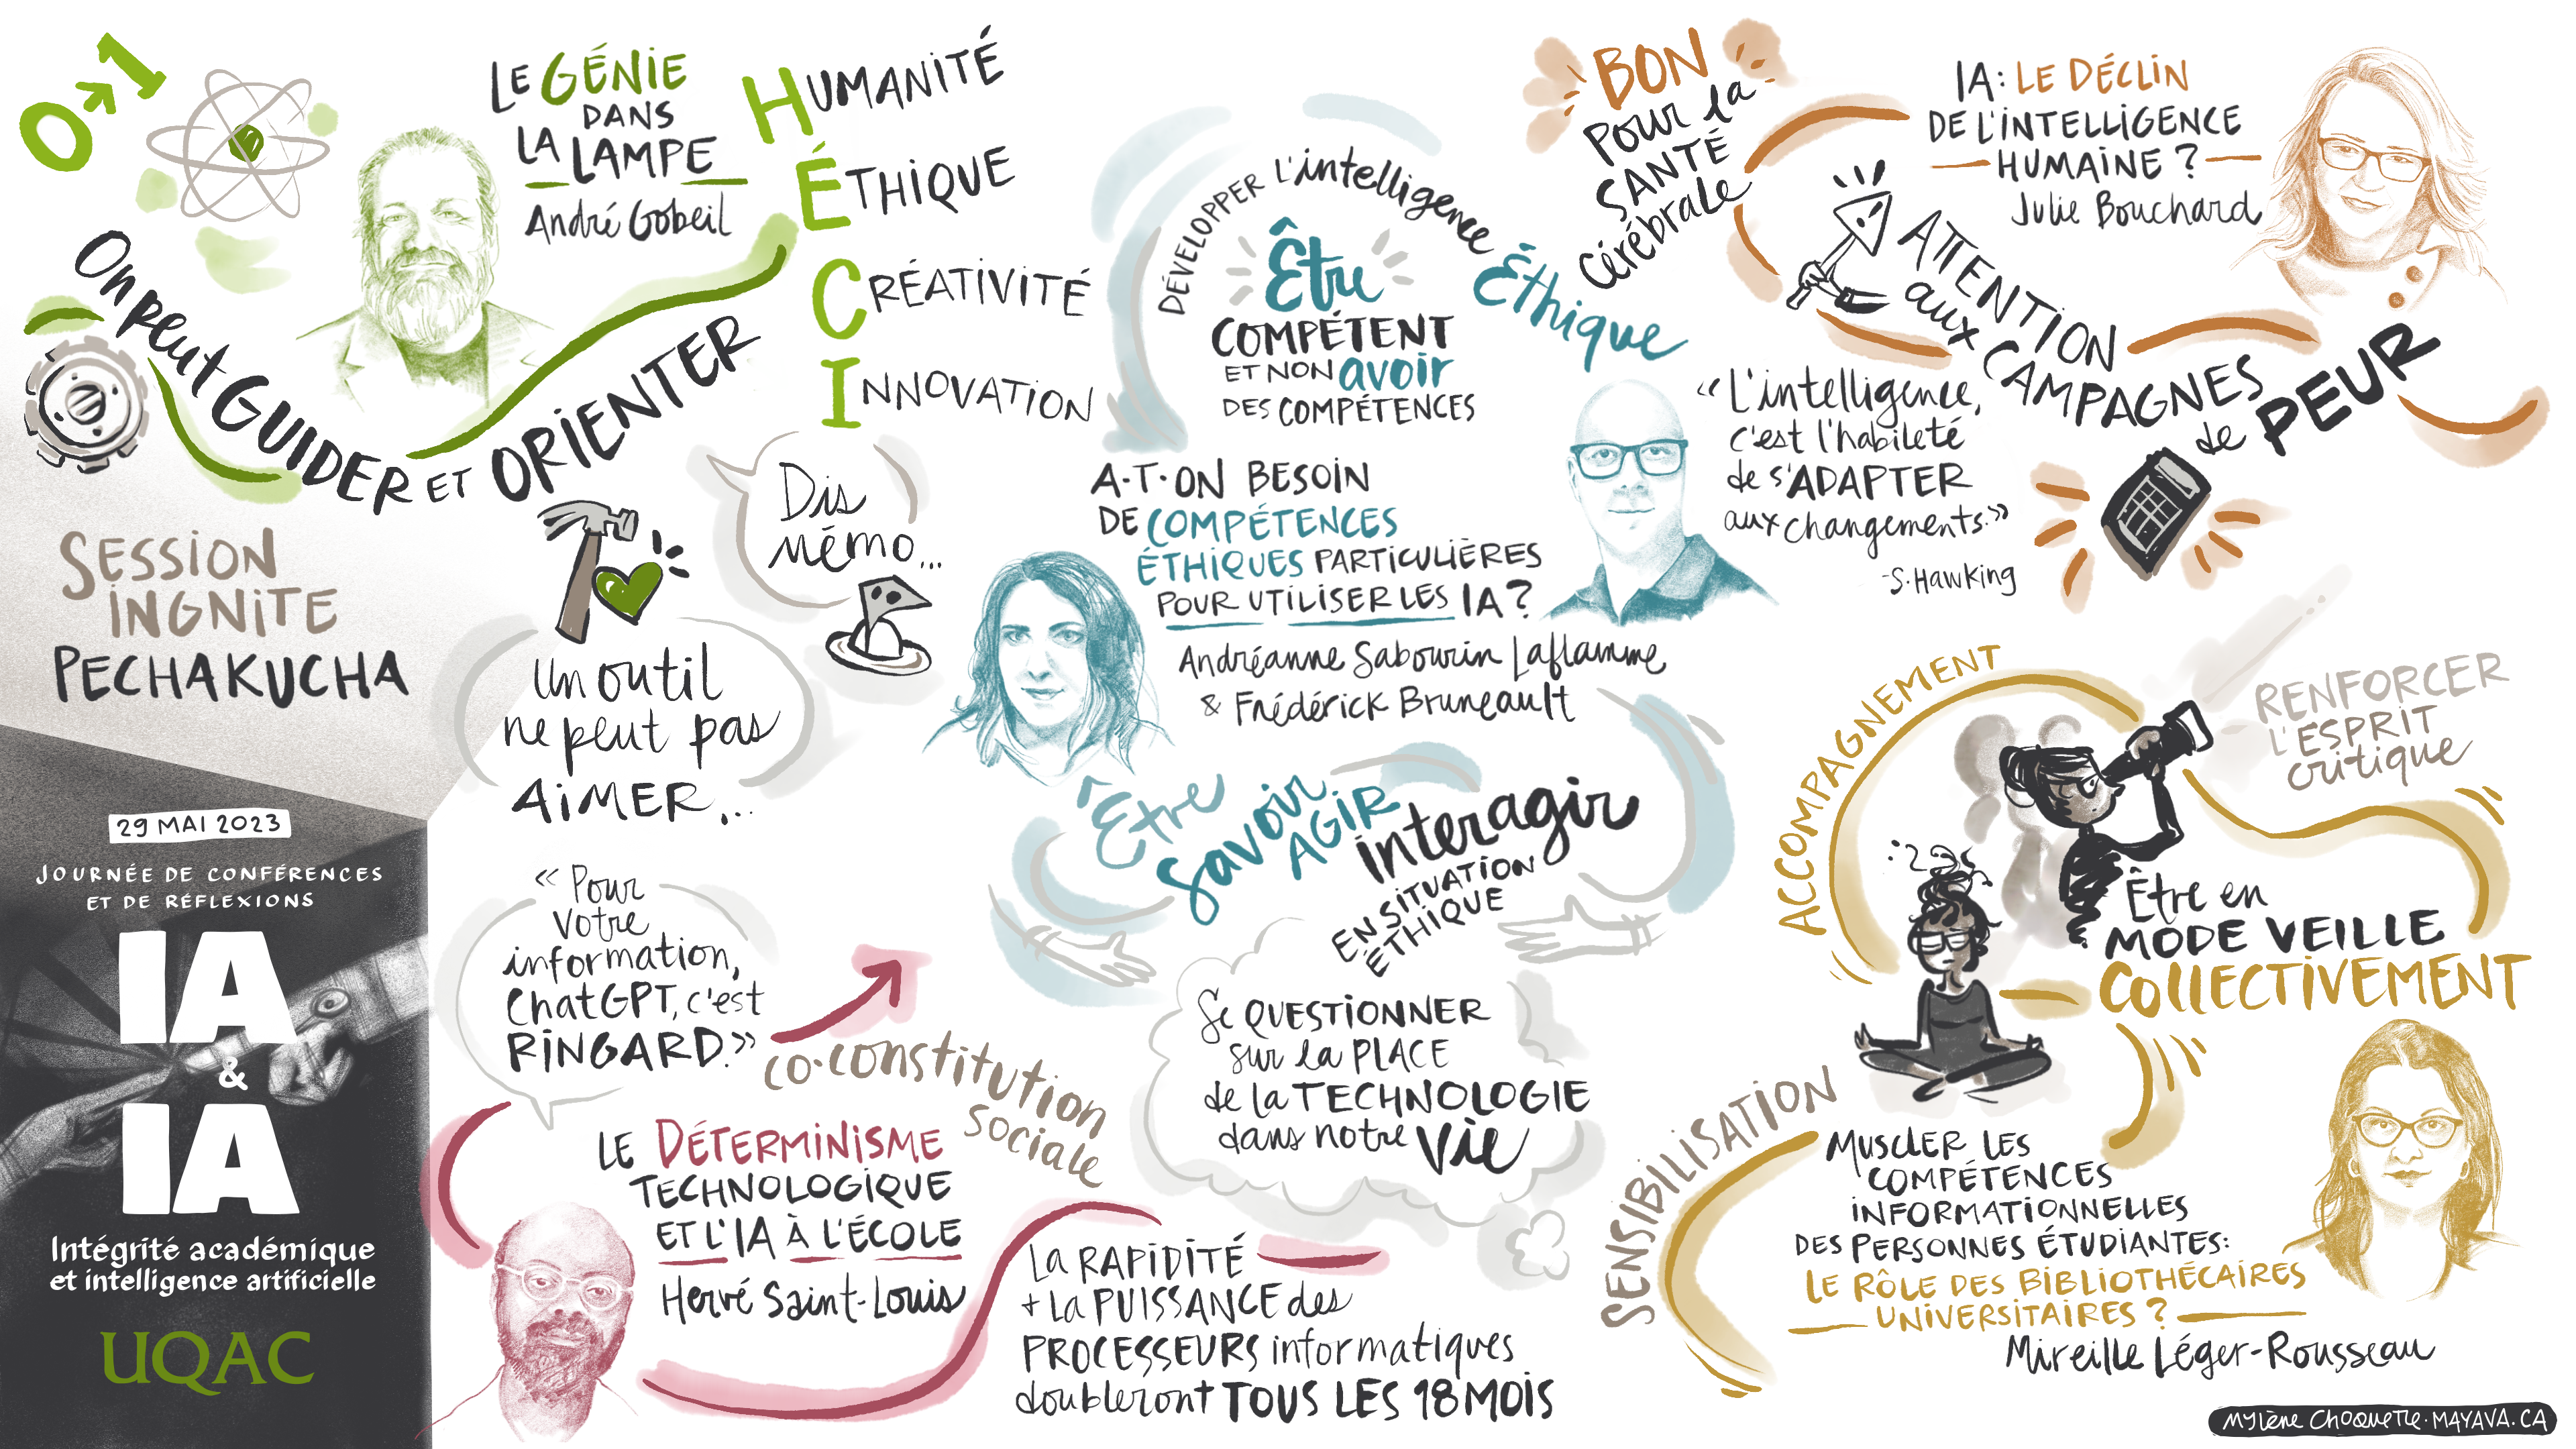 0→1
LE GÉNIE
DANS
LA LAMPE
André Gobeil
On peut GUIDER ET ORIENTER
HUMANITÉ
ÉTHIQUE
CRÉATIVITÉ
INNOVATION
SESSION
INGNITE
PECHAKUCHA
29 MAI 2023
JOURNÉE DE CONFÉRENCES
ET DE RÉFLEXIONS
IA
&
IA
Intégrité académique
et intelligence artificielle
UQAC
Dis
mémo...
Un outil
ne peut pas
AIMER...
« Pour
votre
information,
ChatGPT, c'est
RINGARD. »
co-constitution
sociale
LE DÉTERMINISME
TECHNOLOGIQUE
ET L'IA À L'ÉCOLE
Hervé Saint-Louis
La RAPIDITÉ
+ La PUISSANCE des
PROCESSEURS informatiques
doubleront TOUS LES 18 MOIS
DÉVELOPPER L'intelligence Éthique
Être
COMPÉTENT
ET NON avoir
DES COMPÉTENCES
A-T-ON BESOIN
DE COMPÉTENCES
ÉTHIQUES PARTICULIÈRES
POUR UTILISER LES IA ?
Andréanne Sabourin Laflamme
& Frédérick Bruneault
Être
Savoir
AGIR
interagir
EN SITUATION
ÉTHIQUE
Se QUESTIONNER
sur la PLACE
de la TECHNOLOGIE
dans notre Vie
BON
Pour la
SANTÉ
Cérébrale
IA : LE DÉCLIN
DE L'INTELLIGENCE
HUMAINE ?
Julie Bouchard
ATTENTION
aux CAMPAGNES
de PEUR
« L'intelligence,
c'est l'habileté
de s'ADAPTER
aux changements. »
- S. Hawking
ACCOMPAGNEMENT
RENFORCER
L'ESPRIT
critique
Être en
MODE VEILLE
COLLECTIVEMENT
SENSIBILISATION
MUSCLER LES
COMPÉTENCES
INFORMATIONNELLES
DES PERSONNES ÉTUDIANTES :
LE RÔLE DES BIBLIOTHÉCAIRES
UNIVERSITAIRES ?
Mireille Léger-Rousseau
MYLÈNE CHOQUETTE · MAYAVA.CA